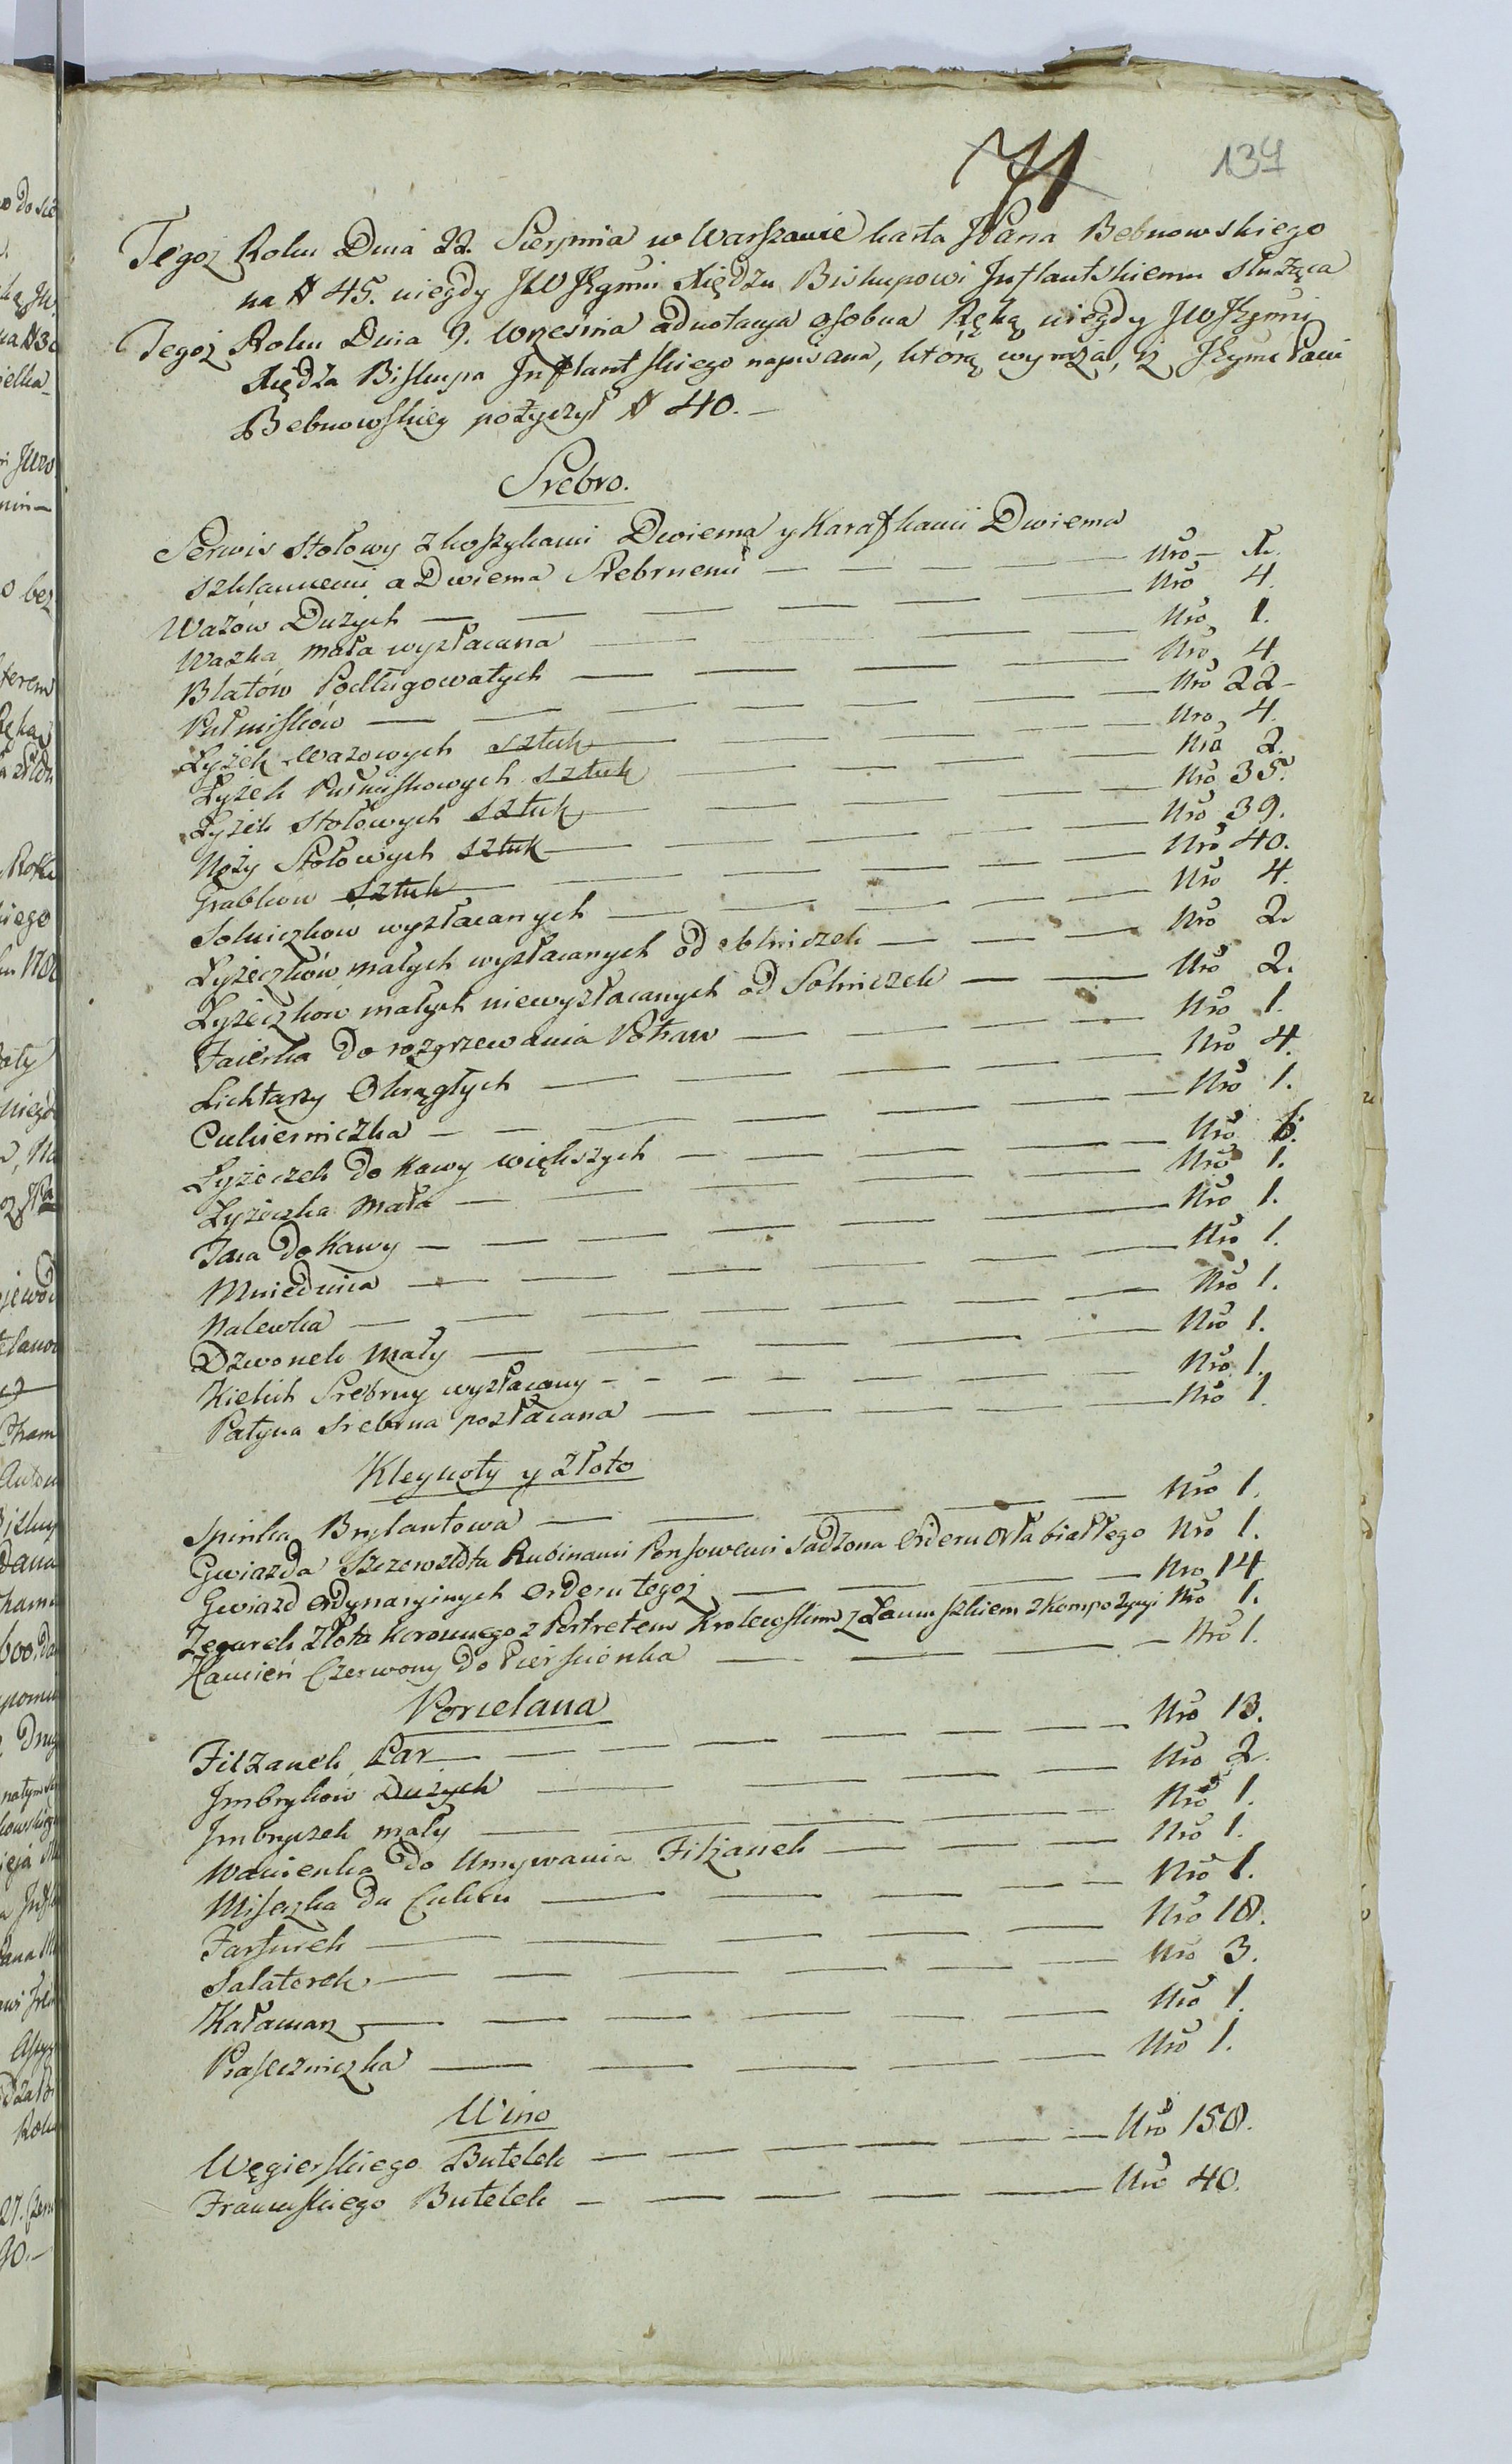 71 137
Tegoż Roku Dnia 22. Sierpnia w Warszawie karta JPana Bebnowskiego
na # 45. niegdy JW JXgmći Xiędzu Biskupowi Inflantskiemu służąca
Tegoż Roku Dnia 9. Września adnotacya osobna Ręką niegdy JW JXgmći
Xiędza Biskupa Inflantskiego napisana, którą wyraża, iż Pani
Bebnowskiey pożyczył # 40.
Srebro.
Serwis stołowy z koszykami Dwiema y Karafkami Dwiema
szklannemi a Dwiema Srebrnemi — Nro —
Wazów Dużych — Nro 4.
Wazka mała wyzłacana — Nro 1.
Blatów Podługowatych — Nro 4
Pułmisków — Nro 22
Łyżek wazowych sztuk — Nro 4.
Łyżek Pułmiskowych sztuk — Nro 2.
Łyżek Stołowych sztuk — Nro 35.
Noży Stołowych sztuk — Nro 39.
Grabkow sztuk — Nro 40.
Solniczkow wyzłacanych — Nro 4.
Łyżeczków małych wyzłacanych od solniczek — Nro 2.
Łyżeczkow małych niewyzłacanych od Solniczek — Nro 2.
Faierka do rozgrzewania Potraw — Nro 1.
Lichtarzy Okrągłych — Nro 4.
Cukierniczka — Nro 1.
Łyżeczek do Kawy większych — Nro 6.
Łyżeczka mała — Nro 1.
Taca do Kawy — Nro 1.
Miednica — Nro 1.
Nalewka — Nro 1.
Dzwonek mały — Nro 1.
Kielich Srebrny wyzłacany — Nro 1.
Patyna srebrna pozłacana — Nro 1.
Kleynoty y złoto
Spinka Brylantowa — Nro 1.
Gwiazda szczerozłota Rubinami Ponsowemi sadzona Orderu Orła białłego Nro 1.
Gwiazd Ordynaryinych Orderu tegoż — Nro 14
Zegarek złota koronnego z Portretem Krolewskim z Łancuszkiem z kompozycyi Nro 1.
Kamień Czerwony do Pierscionka — Nro 1.
Porcelana
Filżanek Par — Nro 13.
Imbrykow Dużych — Nro 2.
Imbryczek mały — Nro 1.
Wanienka do Umywania Filżanek — Nro 1.
Miseczka du Cukru — Nro 1.
Farfurek — Nro 18.
Salaterek — Nro 3.
Kałamarz — Nro 1.
Piaseczniczka — Nro 1.
Wino
Węgierskiego Butelek — Nro 158.
Francuskiego Butelek — Nro 40.